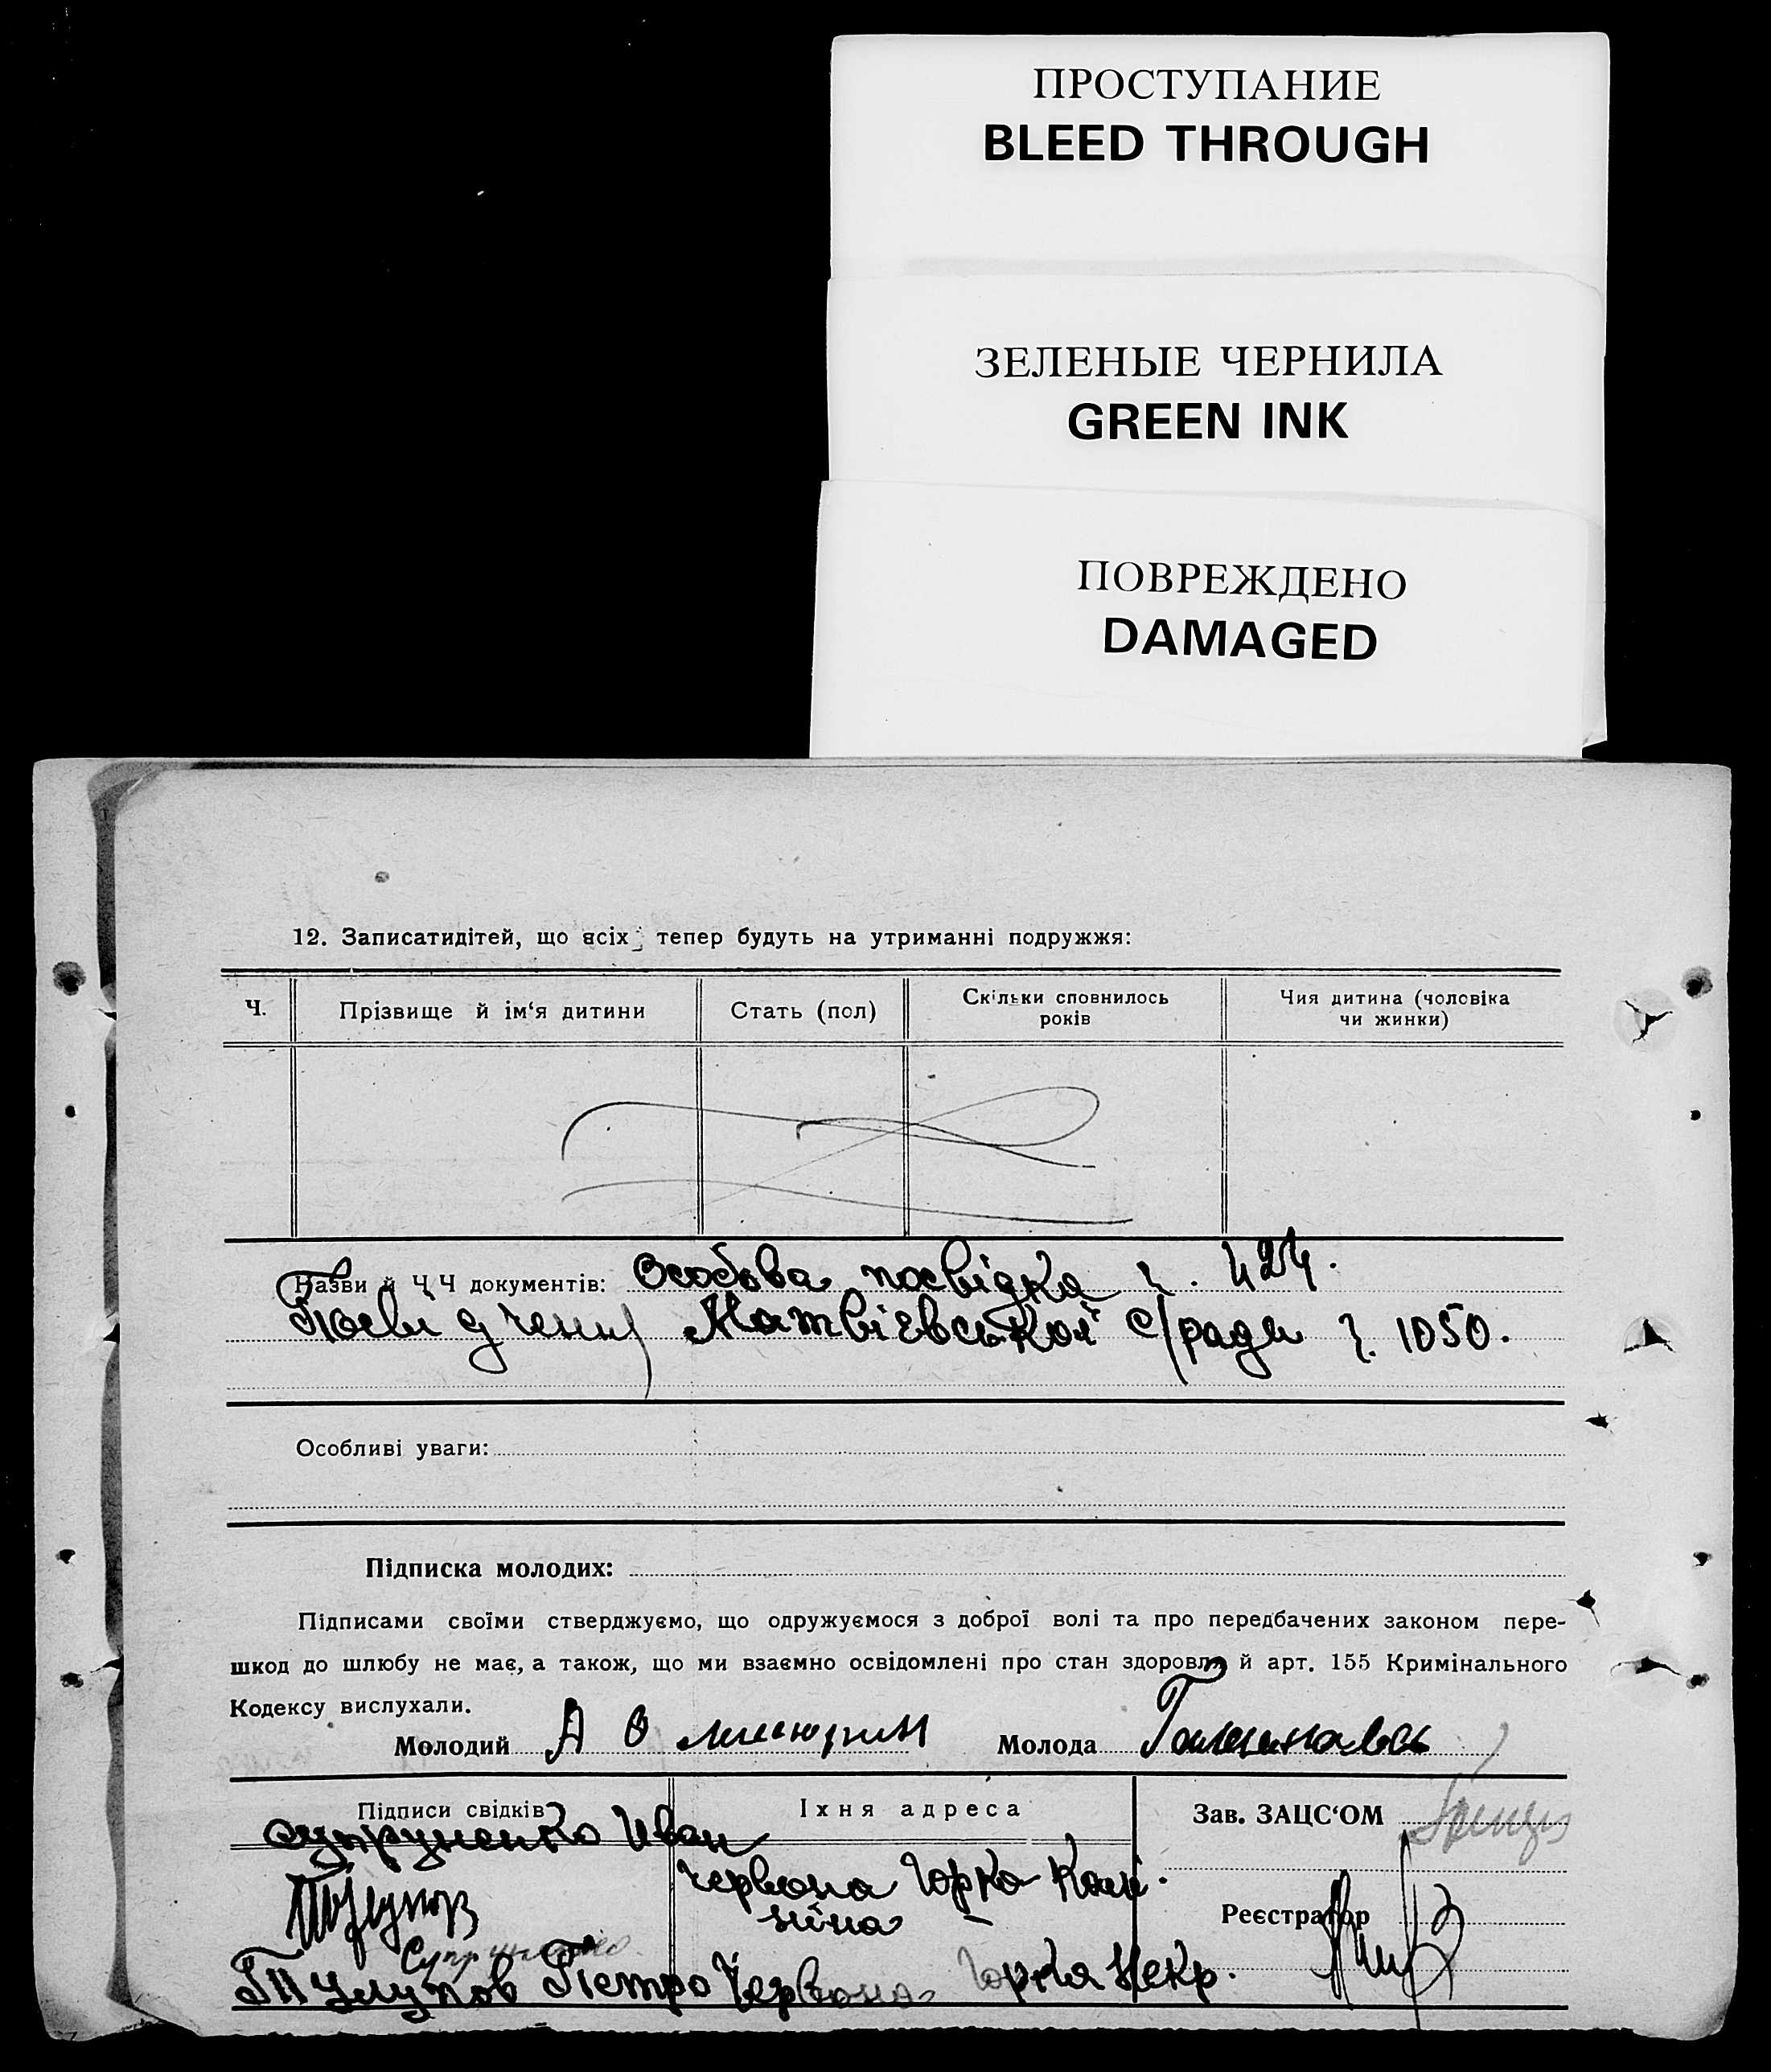 ПРОСТУПАНИЕ
BLEED THROUGH
ЗЕЛЕНЫЕ ЧЕРНИЛА
GREEN INK
ПОВРЕЖДЕНО
DAMAGED
12. Записатидітей, що всіх тепер будуть на утриманні подружжя:
Ч.
Прізвище й ім‘я дитини
Стать (пол)
Скільки сповнилось
років
Чия дитина (чоловіка
чи жинки)
Назви й Ч Ч документів: Особова посвідка ч. 424.
Посвідчення Матвієвської с/ради ч. 1050.
Особливі уваги:
Підписка молодих:
Підписами своїми стверджуємо, що одружуємося з доброї волі та про передбачених законом пере-
шкод до шлюбу не має, а також, що ми взаємно освідомлені про стан здоровля й арт. 155 Кримінального
Кодексу вислухали.
Молодий А О
Молода
Підписи свідків
Їхня адреса
Зав. ЗАЦС‘ОМ
Супруненко Иван
Червона Горка Калі
ніна
Реєстратор
Тулупов Петро Червона Горка Некр.